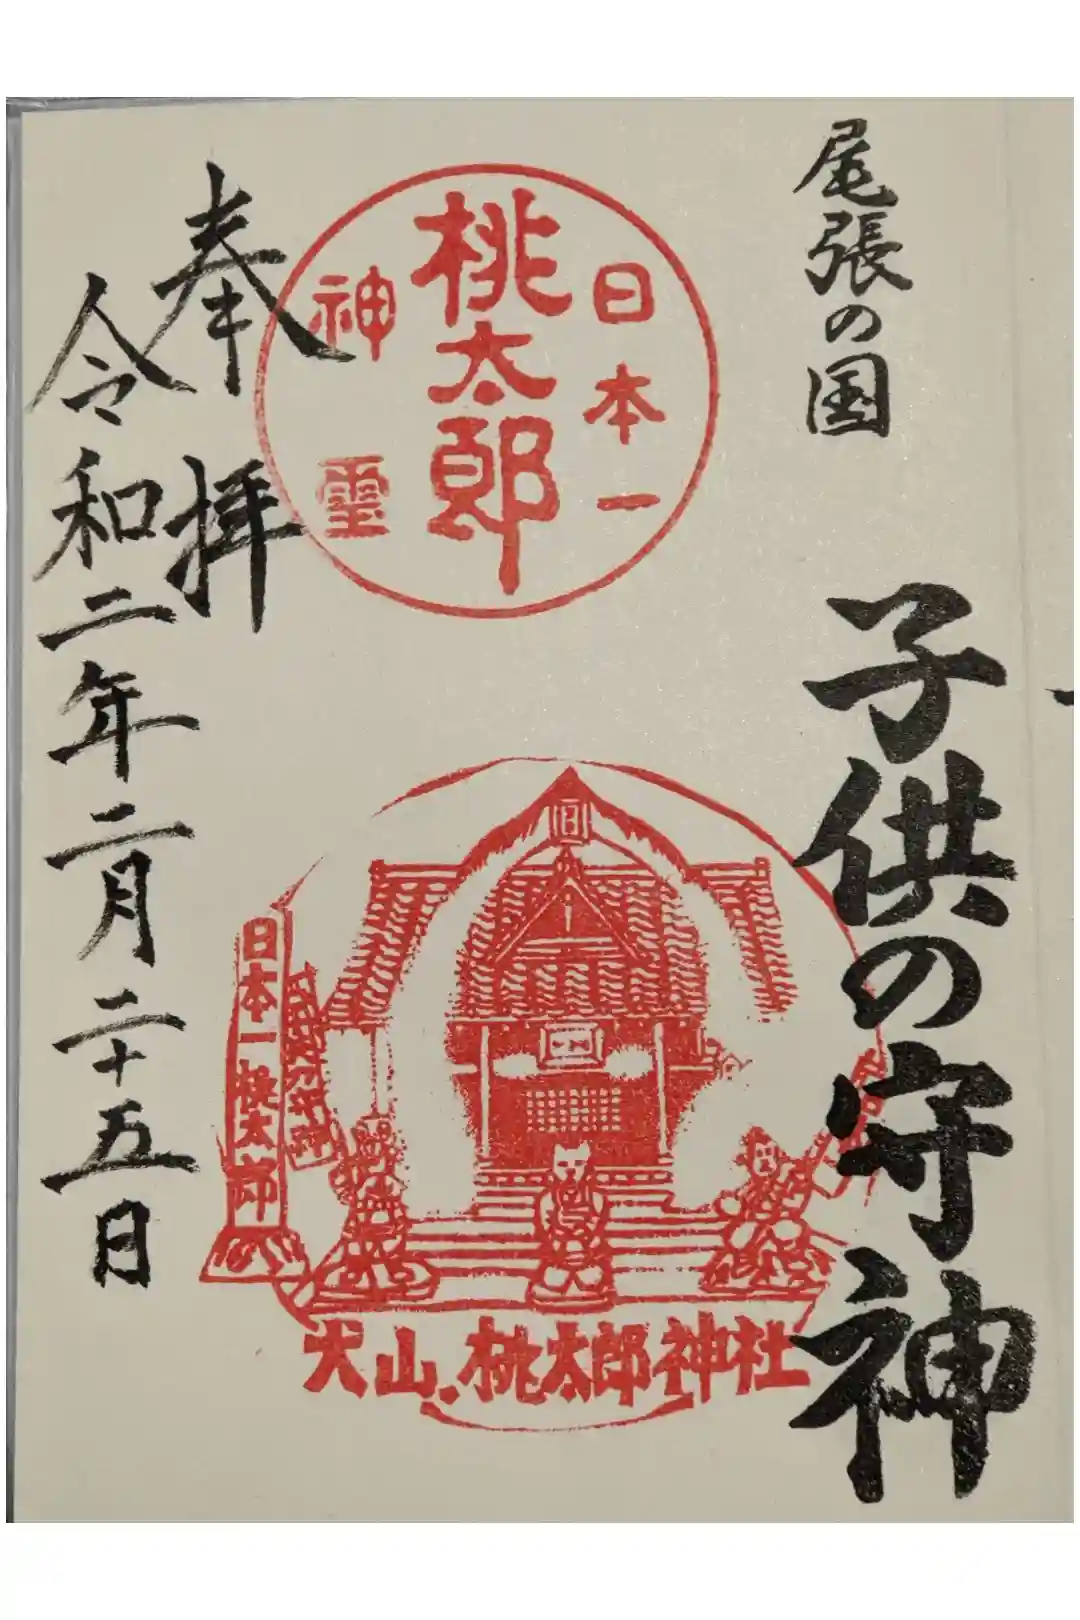 尾張の国
子供の守神
日本一
桃太郎
神霊
奉拝
令和二年二月二十五日
日本一桃太郎
犬山、桃太郎神社